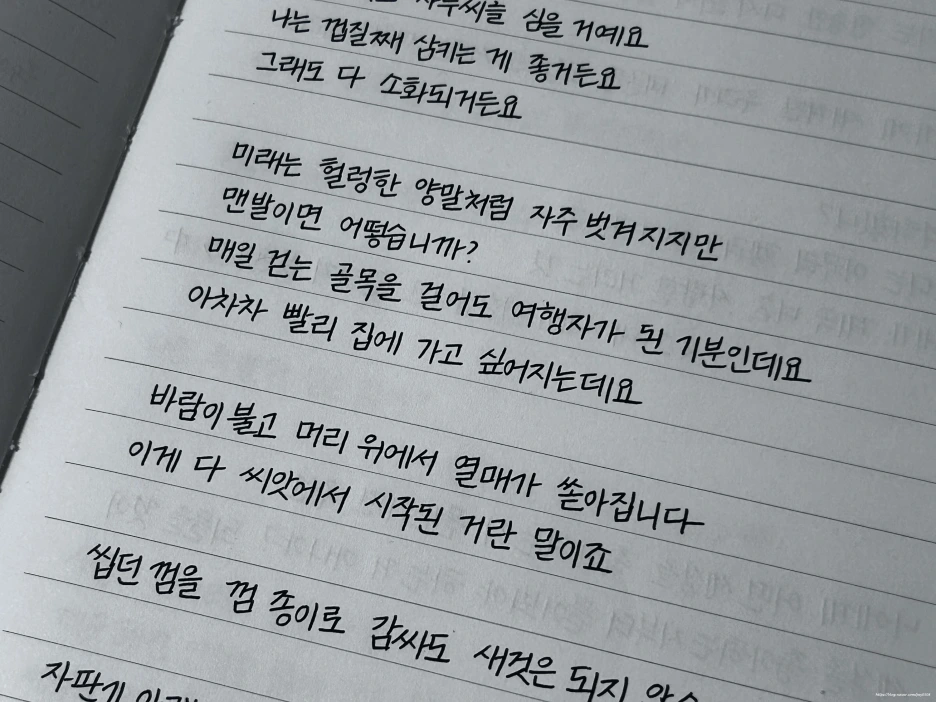 심을 거예요
나는 껍질째 삼키는 게 좋거든요
그래도 다 소화되거든요
미래는 헐렁한 양말처럼 자주 벗겨지지만
맨발이면 어떻습니까?
매일 걷는 골목을 걸어도 여행자가 된 기분인데요
아차차 빨리 집에 가고 싶어지는데요
바람이 불고 머리 위에서 열매가 쏟아집니다
이게 다 씨앗에서 시작된 거란 말이죠
씹던 껌을 껌 종이로 감싸도 새것은 되지